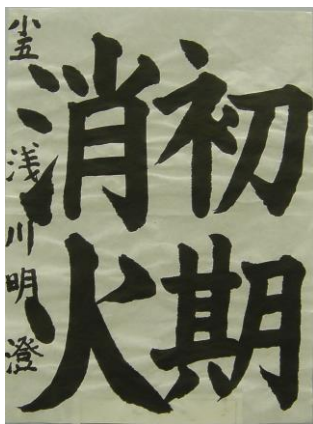 初期
消火
小五 浅川明澄